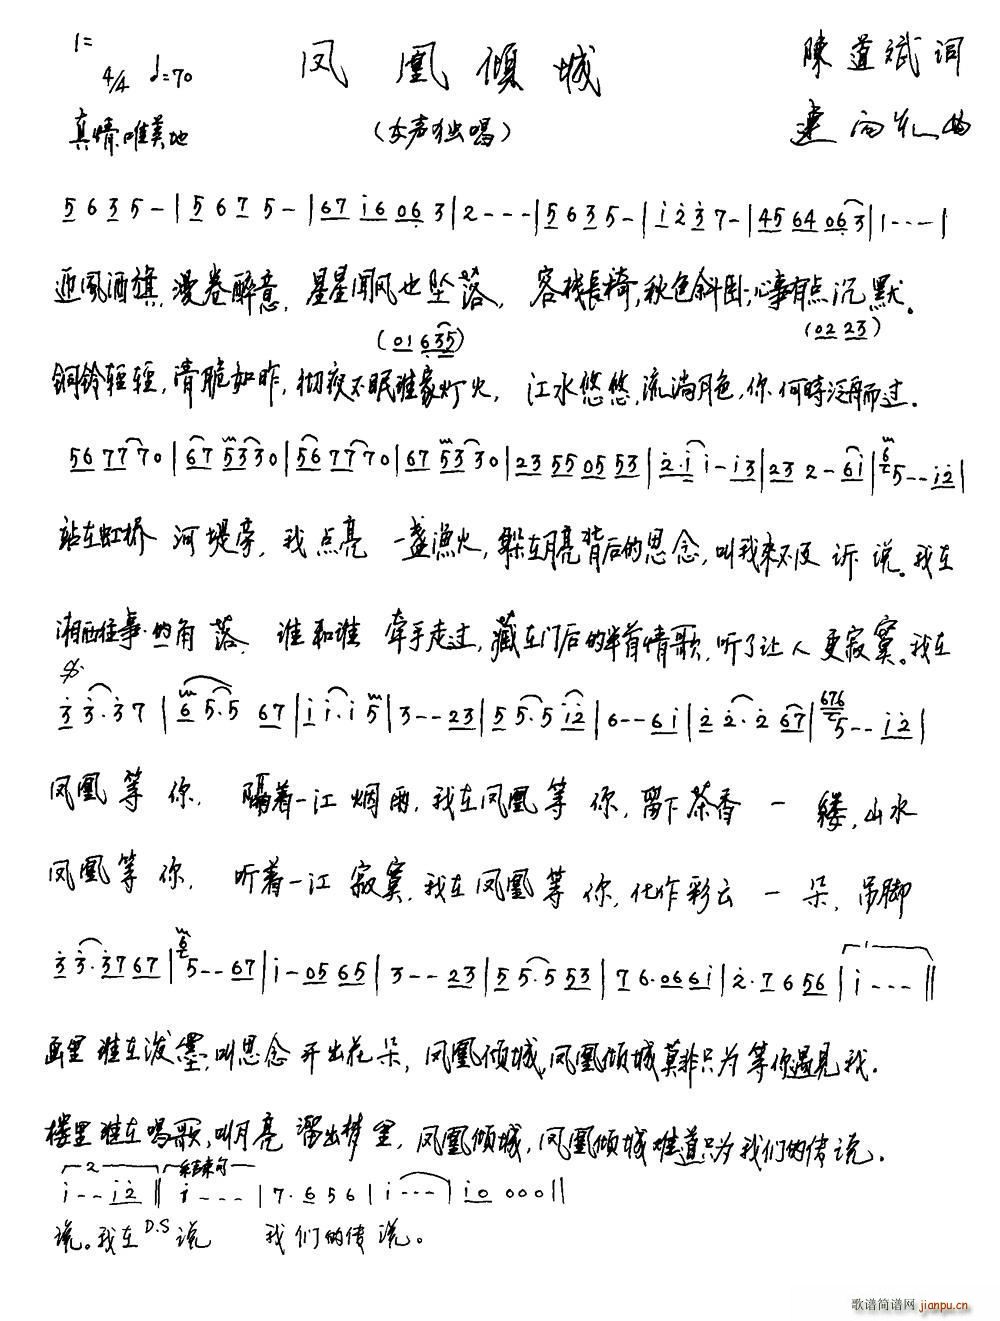 1=
4/4 ♩=70
凤凰倾城
陳道斌 词
真情、唯美地
(女声独唱)
曲
5 6 3 5 - | 5 6 7 5 - | 67 i6 06 3 | 2 - - - | 5 6 3 5 - | i 2 3 7 - | 45 64 06 3 | 1 - - - |
迎風酒旗,漫卷醉意,星星闻风也坠落, 客栈長椅,秋色斜卧,心事有点沉默。
(01 635) (02 23)
铜铃轻轻,清脆如昨,彻夜不眠谁家灯火, 江水悠悠,流淌月色,你何時泛舟而过.
56 77 70 | 67 53 30 | 56 77 70 | 67 53 30 | 23 55 05 53 | 2·i i - i3 | 23 2 - 6i | 6 5 - - i2 |
站在虹桥 河堤旁,我点亮 一盏渔火,躲在月亮背后的思念,叫我来不及诉说。我在
湘西往事的角落 谁和谁 牵手走过,藏在门后的半首情歌,听了让人更寂寞。我在
3 3·3 7 | 6 5·5 67 | i i·i 5 | 3 - - 23 | 5 5·5 i2 | 6 - - 6i | 2 2·2 67 | 676 5 - - i2 |
凤凰等你, 隔着一江烟雨,我在凤凰等你,留下茶香一缕,山水
凤凰等你, 听着一江寂寞,我在凤凰等你,化作彩云一朵,吊脚
3 3·37 67 | 6 5 - - 67 | i - 05 65 | 3 - - 23 | 5 5·5 53 | 7 6·06 6i | 2·7 6 56 | 1 i - - - ||
画里谁在泼墨,叫思念开出花朵,凤凰倾城,凤凰倾城莫非只为等你遇见我.
楼里谁在唱歌,叫月亮溜出梦里,凤凰倾城,凤凰倾城难道只为我们的传说.
2 结束句
i - - i2 || i - - - | 7·6 5 6 | i - - - | i0 0 0 0 ||
说。我在 D.S 说 我们的传说。
歌谱简谱网 jianpu.cn